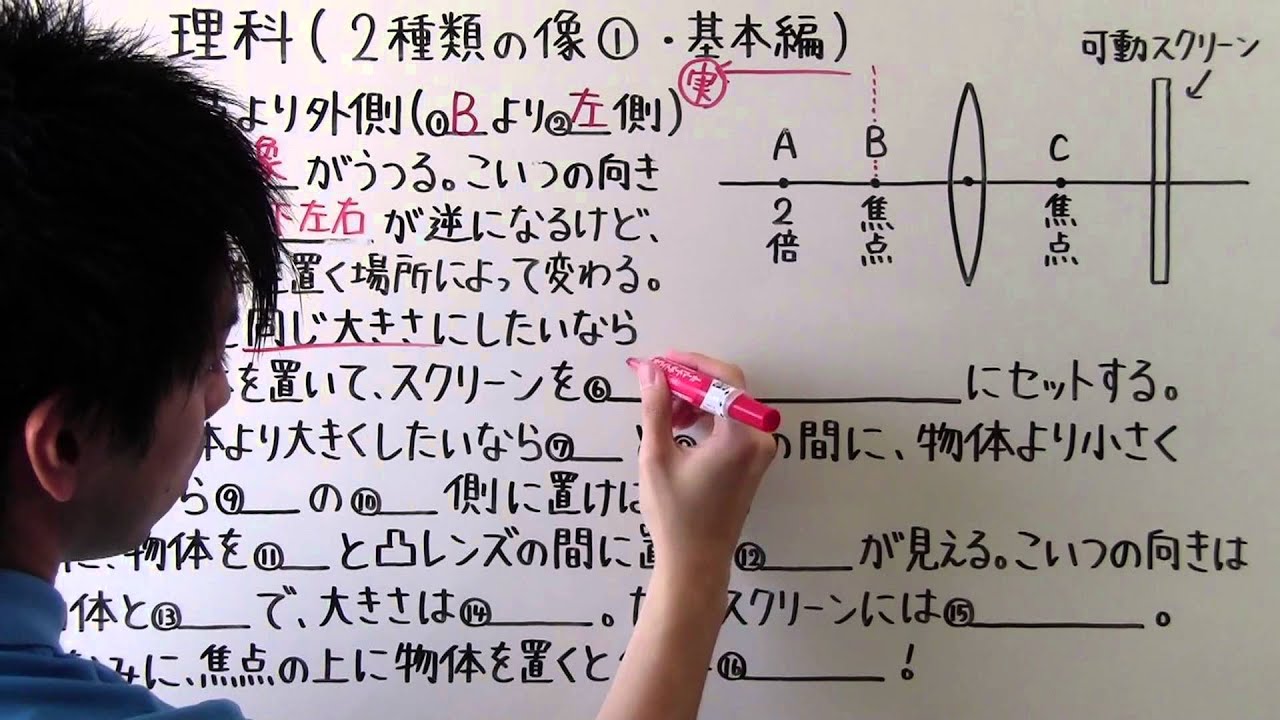 理科(2種類の像①・基本編)
より外側(①Bより②左側)
実
像がうつる。こいつの向き
下左右が逆になるけど、
置く場所によって変わる。
同じ大きさにしたいなら
を置いて、スクリーンを⑥ にセットする。
体より大きくしたいなら⑦ の間に、物体より小さく
ら⑨ の⑩ 側に置けば
物体を⑪ と凸レンズの間に置 ⑫ が見える。こいつの向きは
体と⑬ で、大きさは⑭ 。 スクリーンには⑮ 。
みに、焦点の上に物体を置くと ⑯ !
可動スクリーン
A B C
2倍 焦点 焦点